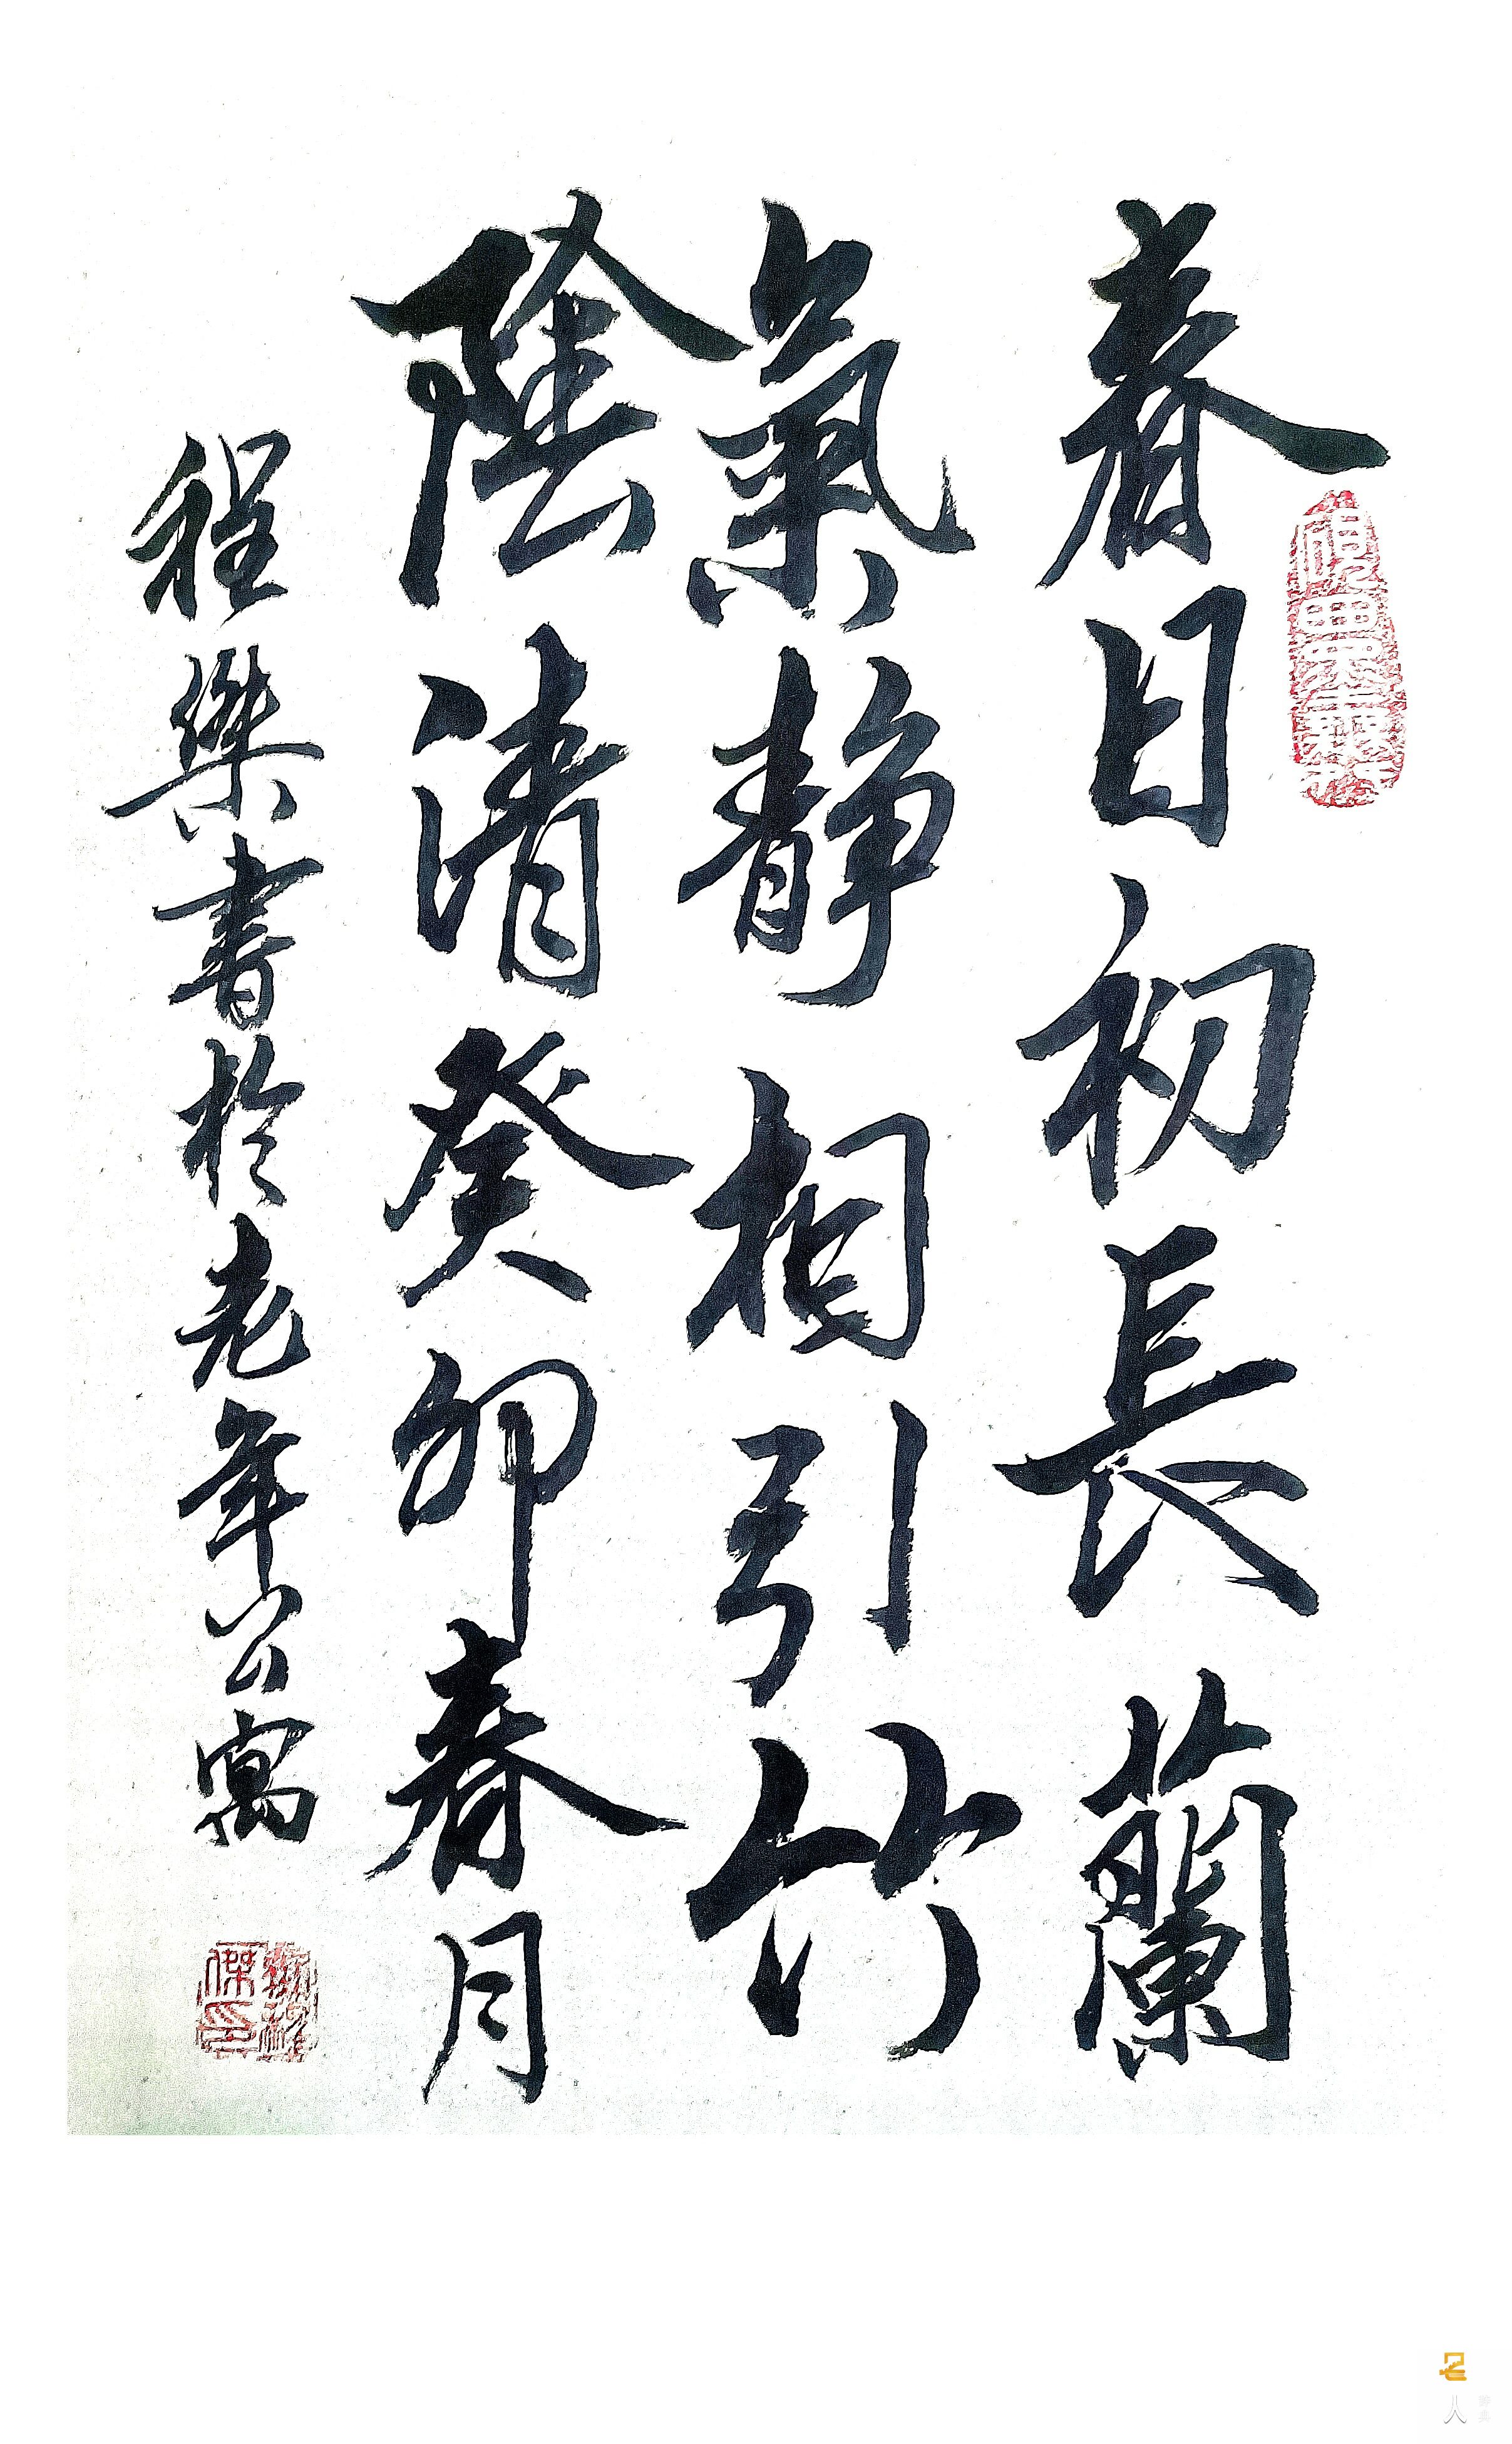 春日初長蘭
氣靜相引竹
陰清癸卯春月
程傑書於老年公寓